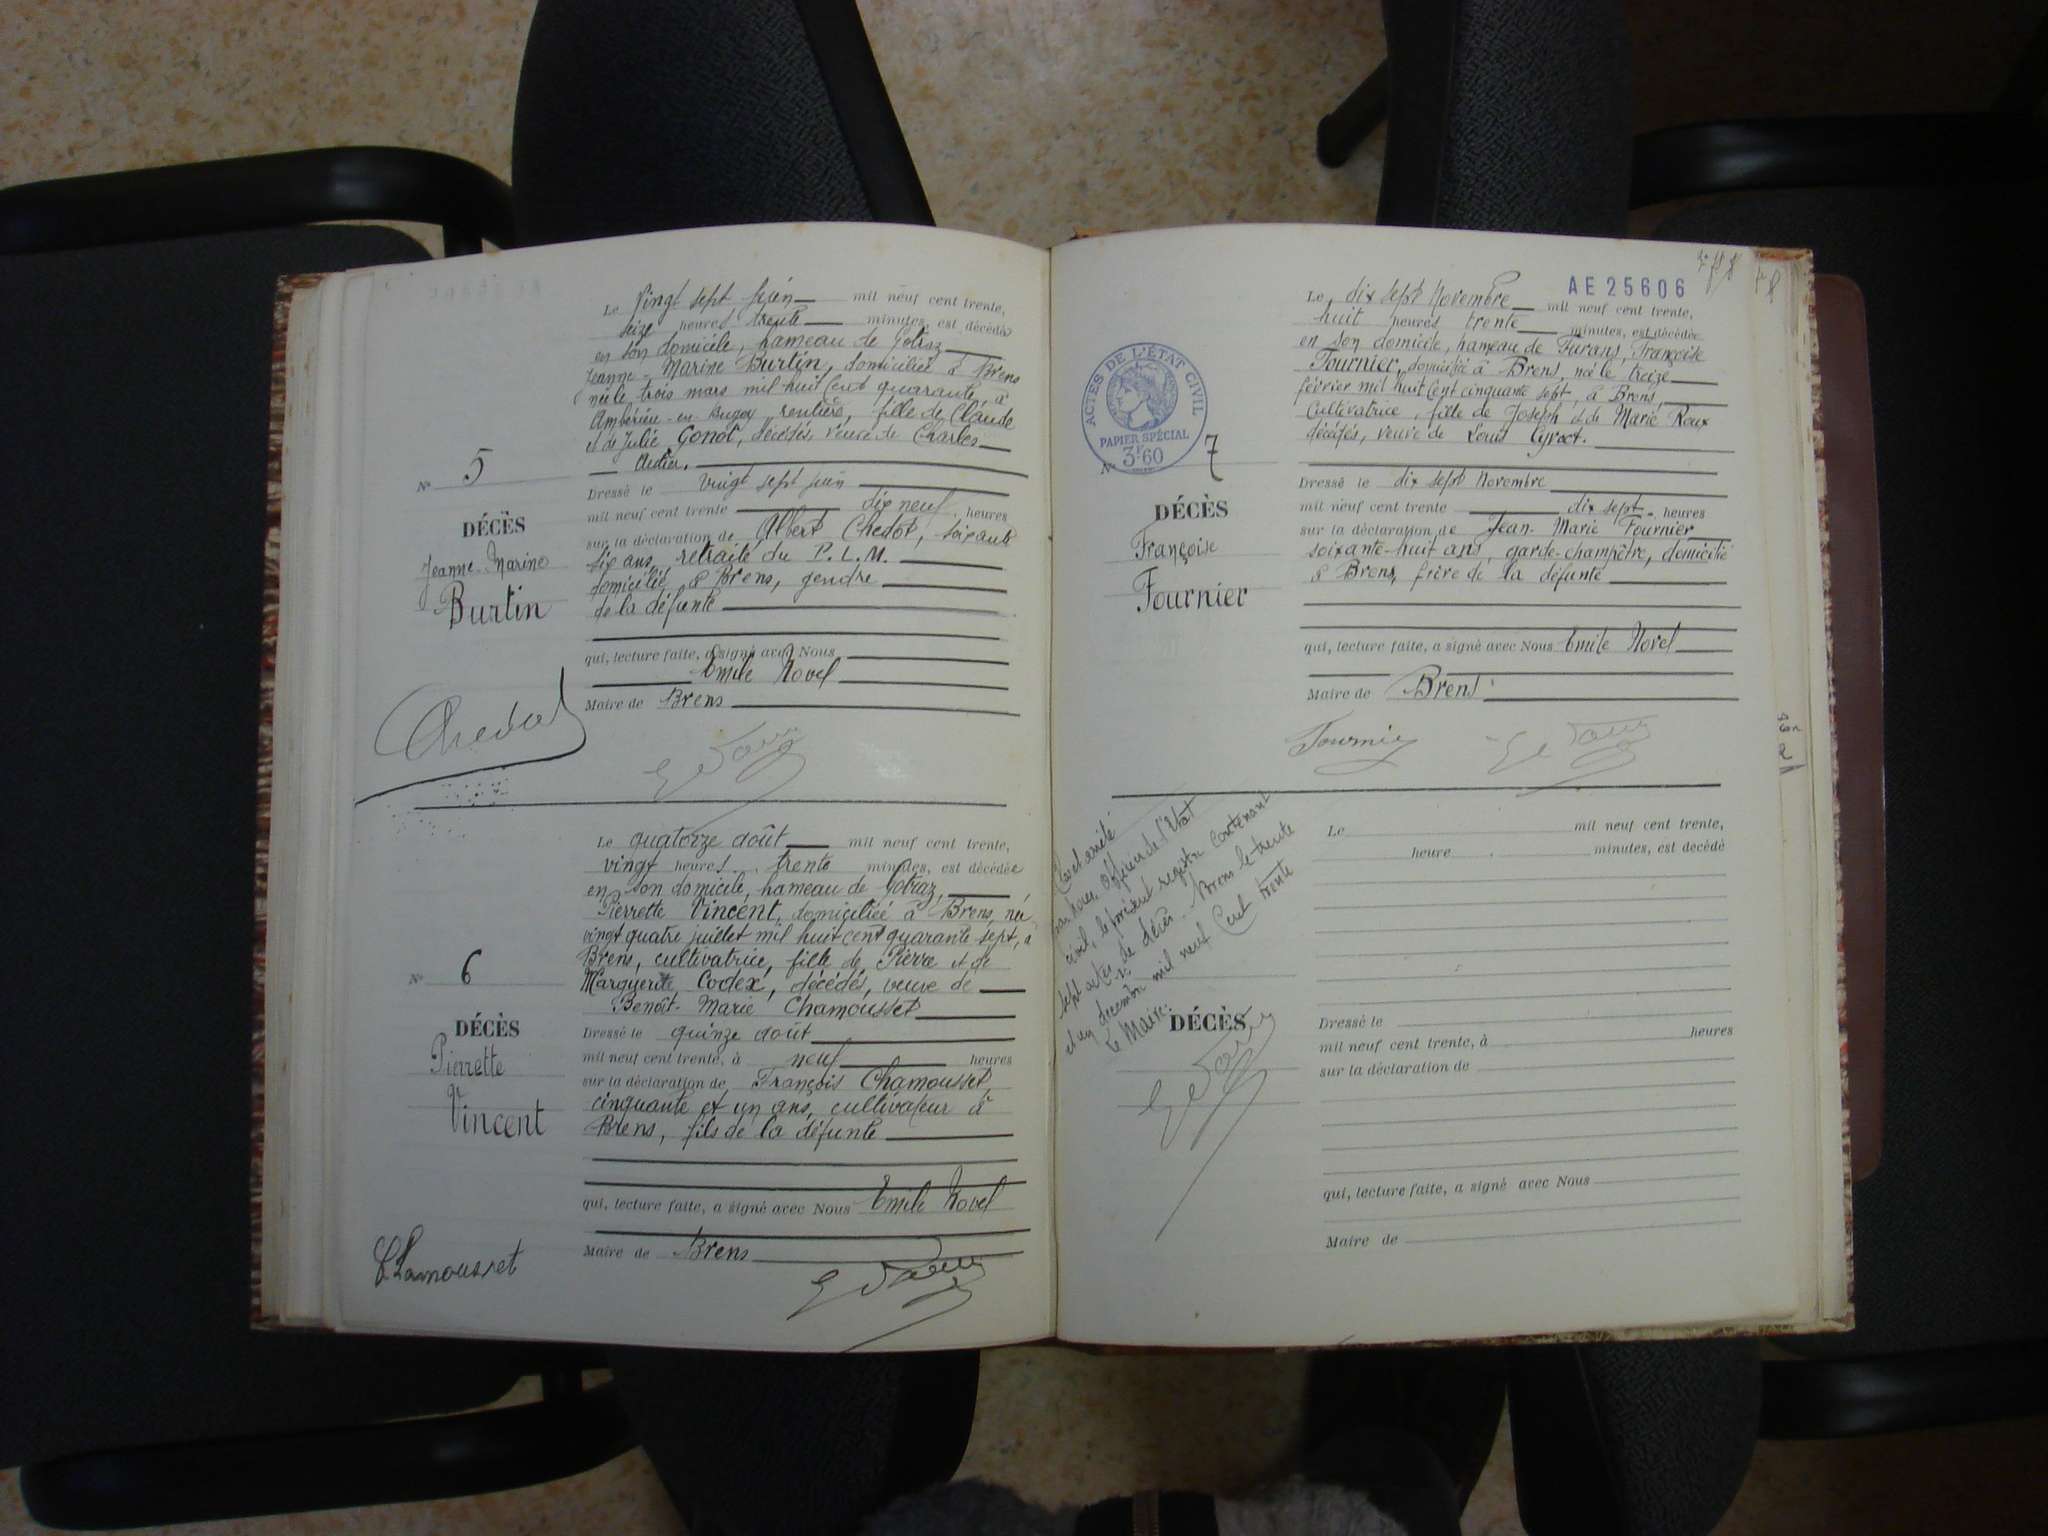 Le Vingt sept juin mil neuf cent trente,
seize heures trente minutes, est décédée
en son domicile, hameau de Gotraz
Jeanne-Marine Burtin, domiciliée à Brens
née le trois mars mil huit cent quarante, à
Ambérieu-en-Bugey rentière, fille de Claude
et de Julie Gonot, décédés, veuve de Charles
Ardier.
N° 5
DÉCÈS
Jeanne-Marine
Burtin
Dressé le vingt sept juin
mil neuf cent trente dix neuf heures
sur la déclaration de Albert Chedot, soixante
six ans, retraité du P.L.M.
domicilié à Brens, gendre
de la défunte
qui, lecture faite, a signé avec Nous
Emile Novel
Maire de Brens
Chedot
Le quatorze août mil neuf cent trente,
vingt heures trente minutes, est décédée
en son domicile, hameau de Gotraz,
Pierrette Vincent, domiciliée à Brens, née
vingt quatre juillet mil huit cent quarante sept, à
Brens, cultivatrice, fille de Pierre et de
Marguerite Codex, décédés, veuve de
Benoît-Marie Chamousset
N° 6
DÉCÈS
Pierrette
Vincent
Dressé le quinze août
mil neuf cent trente, à neuf heures
sur la déclaration de François Chamousset,
cinquante et un ans, cultivateur à
Brens, fils de la défunte
qui, lecture faite, a signé avec Nous Emile Novel
Maire de Brens
Chamousset
AE 25606
Le dix sept Novembre mil neuf cent trente,
huit heures trente minutes, est décédée
en son domicile, hameau de Furans, Françoise
Fournier, domiciliée à Brens, née le treize
février mil huit cent cinquante sept, à Brens,
Cultivatrice, fille de Joseph et de Marie Roux
décédés, veuve de Louis
ACTES DE L'ÉTAT CIVIL
PAPIER SPÉCIAL
3F.60
N° 7
DÉCÈS
Françoise
Fournier
Dressé le dix sept Novembre
mil neuf cent trente dix sept heures
sur la déclaration de Jean-Marie Fournier
soixante-huit ans, garde-champêtre, domicilié
à Brens, frère de la défunte
qui, lecture faite, a signé avec Nous Emile Novel
Maire de Brens
Fournier
Clos et arrêté
par nous, Officier de l'Etat
civil, le présent registre contenant
sept actes de décès. Brens le trente
et un décembre mil neuf cent trente
Le Maire:
Le mil neuf cent trente,
heure minutes, est décédé
DÉCÈS
Dressé le
mil neuf cent trente, à heures
sur la déclaration de
qui, lecture faite, a signé avec Nous
Maire de